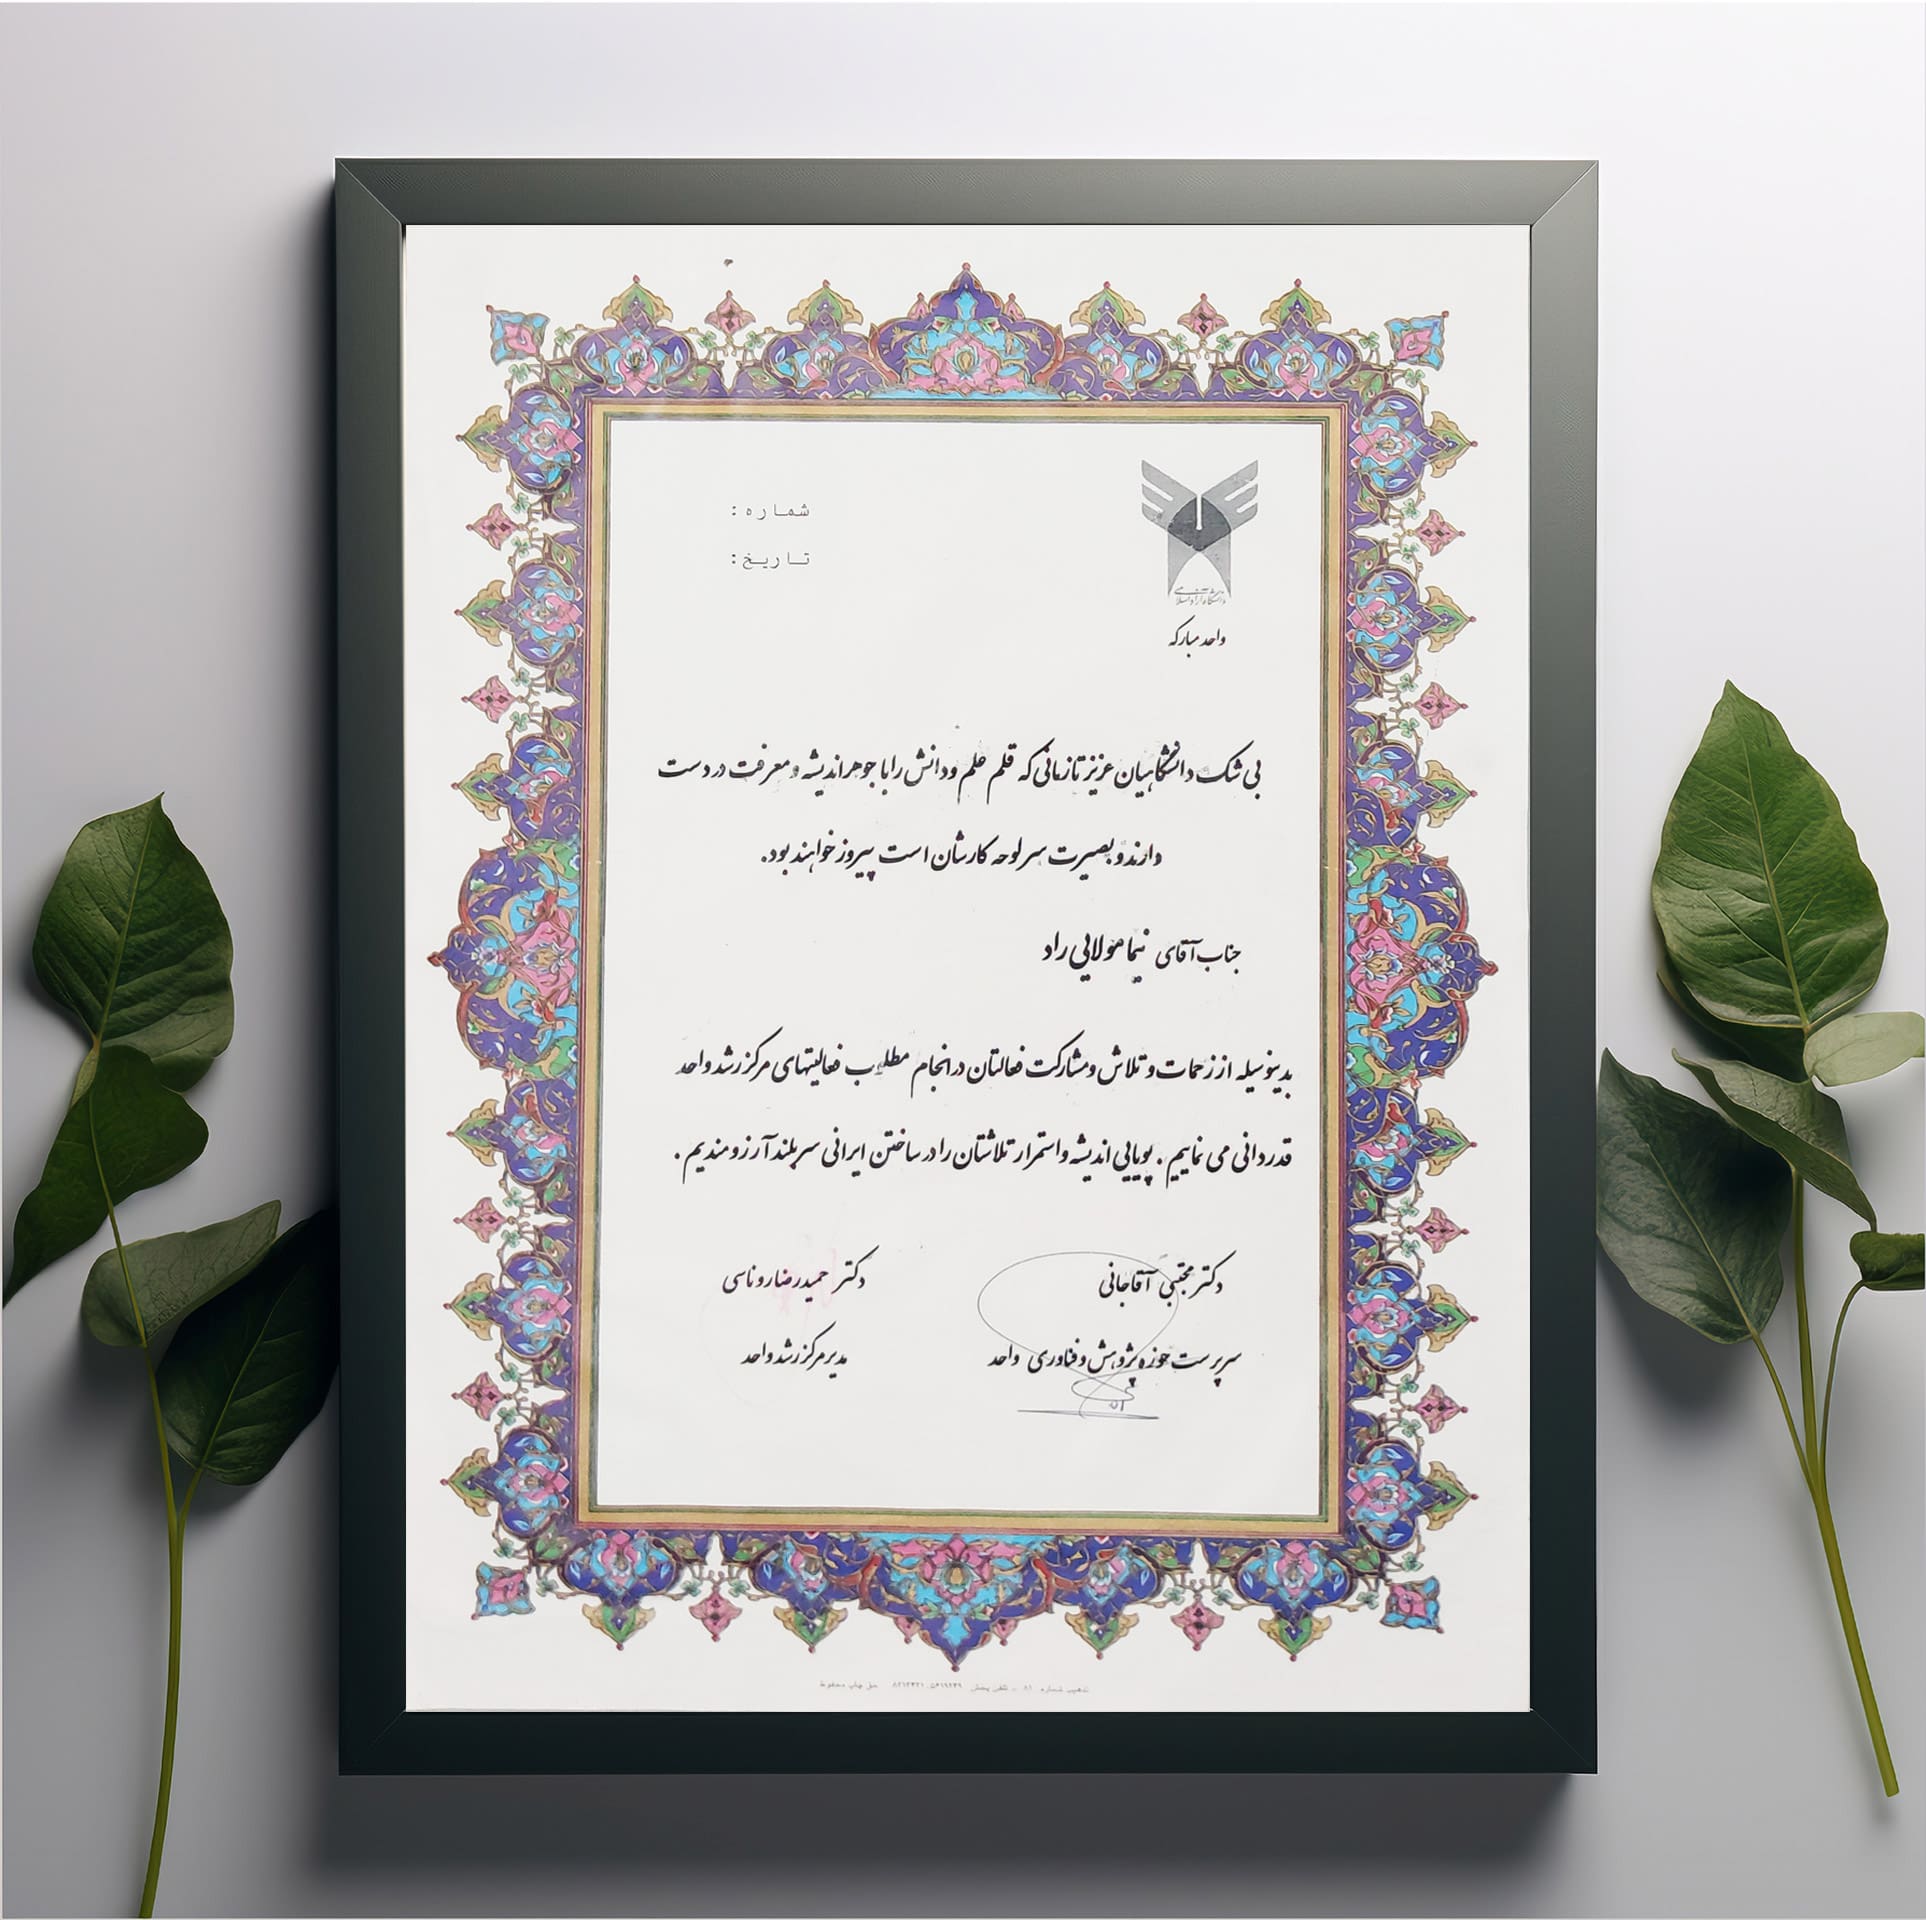 شماره :
تاریخ :
دانشگاه آزاد اسلامی
واحد مبارکه
بی شک دانشگاهیان عزیز تا زمانی که قلم علم و دانش را با جوهر اندیشه و معرفت در دست
دارند و بصیرت سرلوحه کارشان است پیروز خواهند بود.
جناب آقای نیما مولایی راد
بدینوسیله از زحمات و تلاش و مشارکت فعالتان در انجام مطلوب فعالیتهای مرکز رشد واحد
قدردانی می نماییم . پویایی اندیشه و استمرار تلاشتان را در ساختن ایرانی سربلند آرزومندیم .
دکتر مجتبی آقاجانی
سرپرست حوزه پژوهش و فناوری واحد
دکتر حمیدرضا روناسی
مدیر مرکز رشد واحد